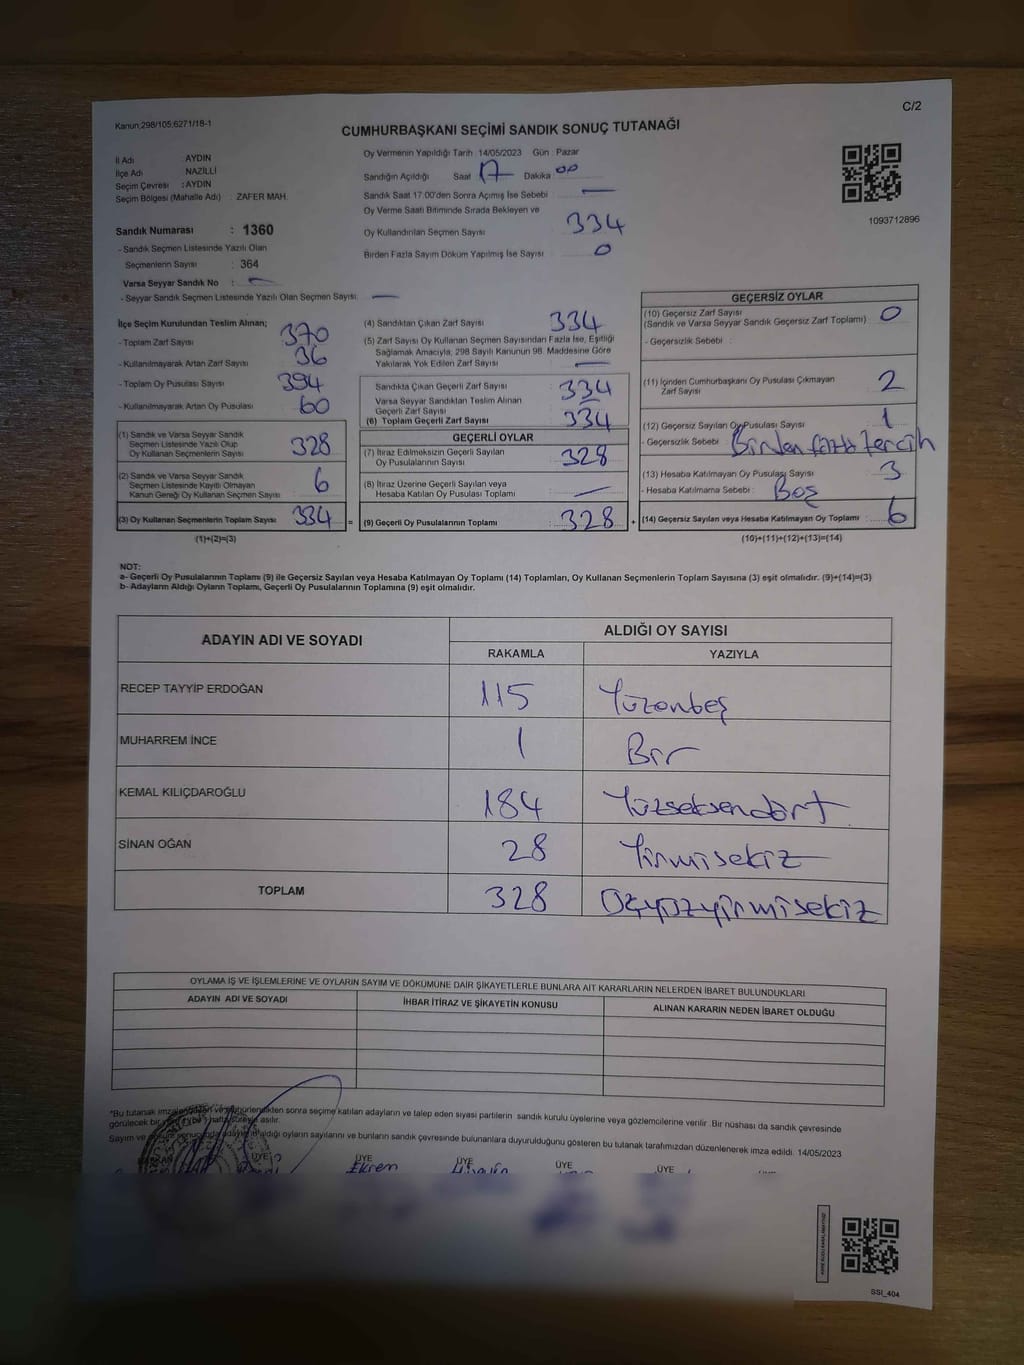 C/2
Kanun:298/105;6271/18-1
CUMHURBAŞKANI SEÇİMİ SANDIK SONUÇ TUTANAĞI
İl Adı AYDIN
İlçe Adı NAZİLLİ
Seçim Çevresi : AYDIN
Seçim Bölgesi (Mahalle Adı) : ZAFER MAH.
Oy Vermenin Yapıldığı Tarih :14/05/2023 Gün : Pazar
Sandığın Açıldığı Saat 17 Dakika 00
Sandık Saat 17:00'den Sonra Açılmış İse Sebebi : —
Oy Verme Saati Bitiminde Sırada Bekleyen ve
Oy Kullandırılan Seçmen Sayısı 334
Birden Fazla Sayım Döküm Yapılmış İse Sayısı : 0
1093712896
Sandık Numarası : 1360
- Sandık Seçmen Listesinde Yazılı Olan
Seçmenlerin Sayısı : 364
Varsa Seyyar Sandık No : —
- Seyyar Sandık Seçmen Listesinde Yazılı Olan Seçmen Sayısı: —
İlçe Seçim Kurulundan Teslim Alınan;
- Toplam Zarf Sayısı 370
- Kullanılmayarak Artan Zarf Sayısı 36
- Toplam Oy Pusulası Sayısı 394
- Kullanılmayarak Artan Oy Pusulası 60
(1) Sandık ve Varsa Seyyar Sandık
Seçmen Listesinde Yazılı Olup
Oy Kullanan Seçmenlerin Sayısı 328
(2) Sandık ve Varsa Seyyar Sandık
Seçmen Listesinde Kayıtlı Olmayan
Kanun Gereği Oy Kullanan Seçmen Sayısı 6
(3) Oy Kullanan Seçmenlerin Toplam Sayısı 334 =
(1)+(2)=(3)
(4) Sandıktan Çıkan Zarf Sayısı 334
(5) Zarf Sayısı Oy Kullanan Seçmen Sayısından Fazla İse, Eşitliği
Sağlamak Amacıyla, 298 Sayılı Kanunun 98. Maddesine Göre
Yakılarak Yok Edilen Zarf Sayısı : —
Sandıkta Çıkan Geçerli Zarf Sayısı 334
Varsa Seyyar Sandıktan Teslim Alınan
Geçerli Zarf Sayısı : —
(6) Toplam Geçerli Zarf Sayısı 334
GEÇERLİ OYLAR
(7) İtiraz Edilmeksizin Geçerli Sayılan
Oy Pusulalarının Sayısı 328
(8) İtiraz Üzerine Geçerli Sayılan veya
Hesaba Katılan Oy Pusulası Toplamı : —
(9) Geçerli Oy Pusulalarının Toplamı : 328 +
GEÇERSİZ OYLAR
(10) Geçersiz Zarf Sayısı
(Sandık ve Varsa Seyyar Sandık Geçersiz Zarf Toplamı) : 0
- Geçersizlik Sebebi :
(11) İçinden Cumhurbaşkanı Oy Pusulası Çıkmayan
Zarf Sayısı 2
(12) Geçersiz Sayılan Oy Pusulası Sayısı 1
- Geçersizlik Sebebi : Birden fazla tercih
(13) Hesaba Katılmayan Oy Pusulası Sayısı 3
- Hesaba Katılmama Sebebi : Boş
(14) Geçersiz Sayılan veya Hesaba Katılmayan Oy Toplamı : 6
(10)+(11)+(12)+(13)=(14)
NOT:
a- Geçerli Oy Pusulalarının Toplamı (9) ile Geçersiz Sayılan veya Hesaba Katılmayan Oy Toplamı (14) Toplamları, Oy Kullanan Seçmenlerin Toplam Sayısına (3) eşit olmalıdır. (9)+(14)=(3)
b- Adayların Aldığı Oyların Toplamı, Geçerli Oy Pusulalarının Toplamına (9) eşit olmalıdır.
ADAYIN ADI VE SOYADI ALDIĞI OY SAYISI
RAKAMLA YAZIYLA
RECEP TAYYİP ERDOĞAN 115 Yüzonbeş
MUHARREM İNCE 1 Bir
KEMAL KILIÇDAROĞLU 184 Yüzseksendört
SİNAN OĞAN 28 Yirmisekiz
TOPLAM 328 Üçyüzyirmisekiz
OYLAMA İŞ VE İŞLEMLERİNE VE OYLARIN SAYIM VE DÖKÜMÜNE DAİR ŞİKAYETLERLE BUNLARA AİT KARARLARIN NELERDEN İBARET BULUNDUKLARI
ADAYIN ADI VE SOYADI İHBAR İTİRAZ VE ŞİKAYETİN KONUSU ALINAN KARARIN NEDEN İBARET OLDUĞU
*Bu tutanak sonra seçime katılan adayların ve talep eden siyasi partilerin sandık kurulu üyelerine veya gözlemcilerine verilir. Bir nüshası da sandık çevresinde
görülecek bir asılır.
Sayım ve aldığı oyların sayılarını ve bunların sandık çevresinde bulunanlara duyurulduğunu gösteren bu tutanak tarafımızdan düzenlenerek imza edildi. 14/05/2023
ÜYE ÜYE ÜYE ÜYE ÜYE
Ekrem
SSI_404